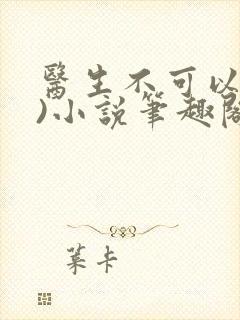 醫生不可以
)小說筆趣閣
葉卡